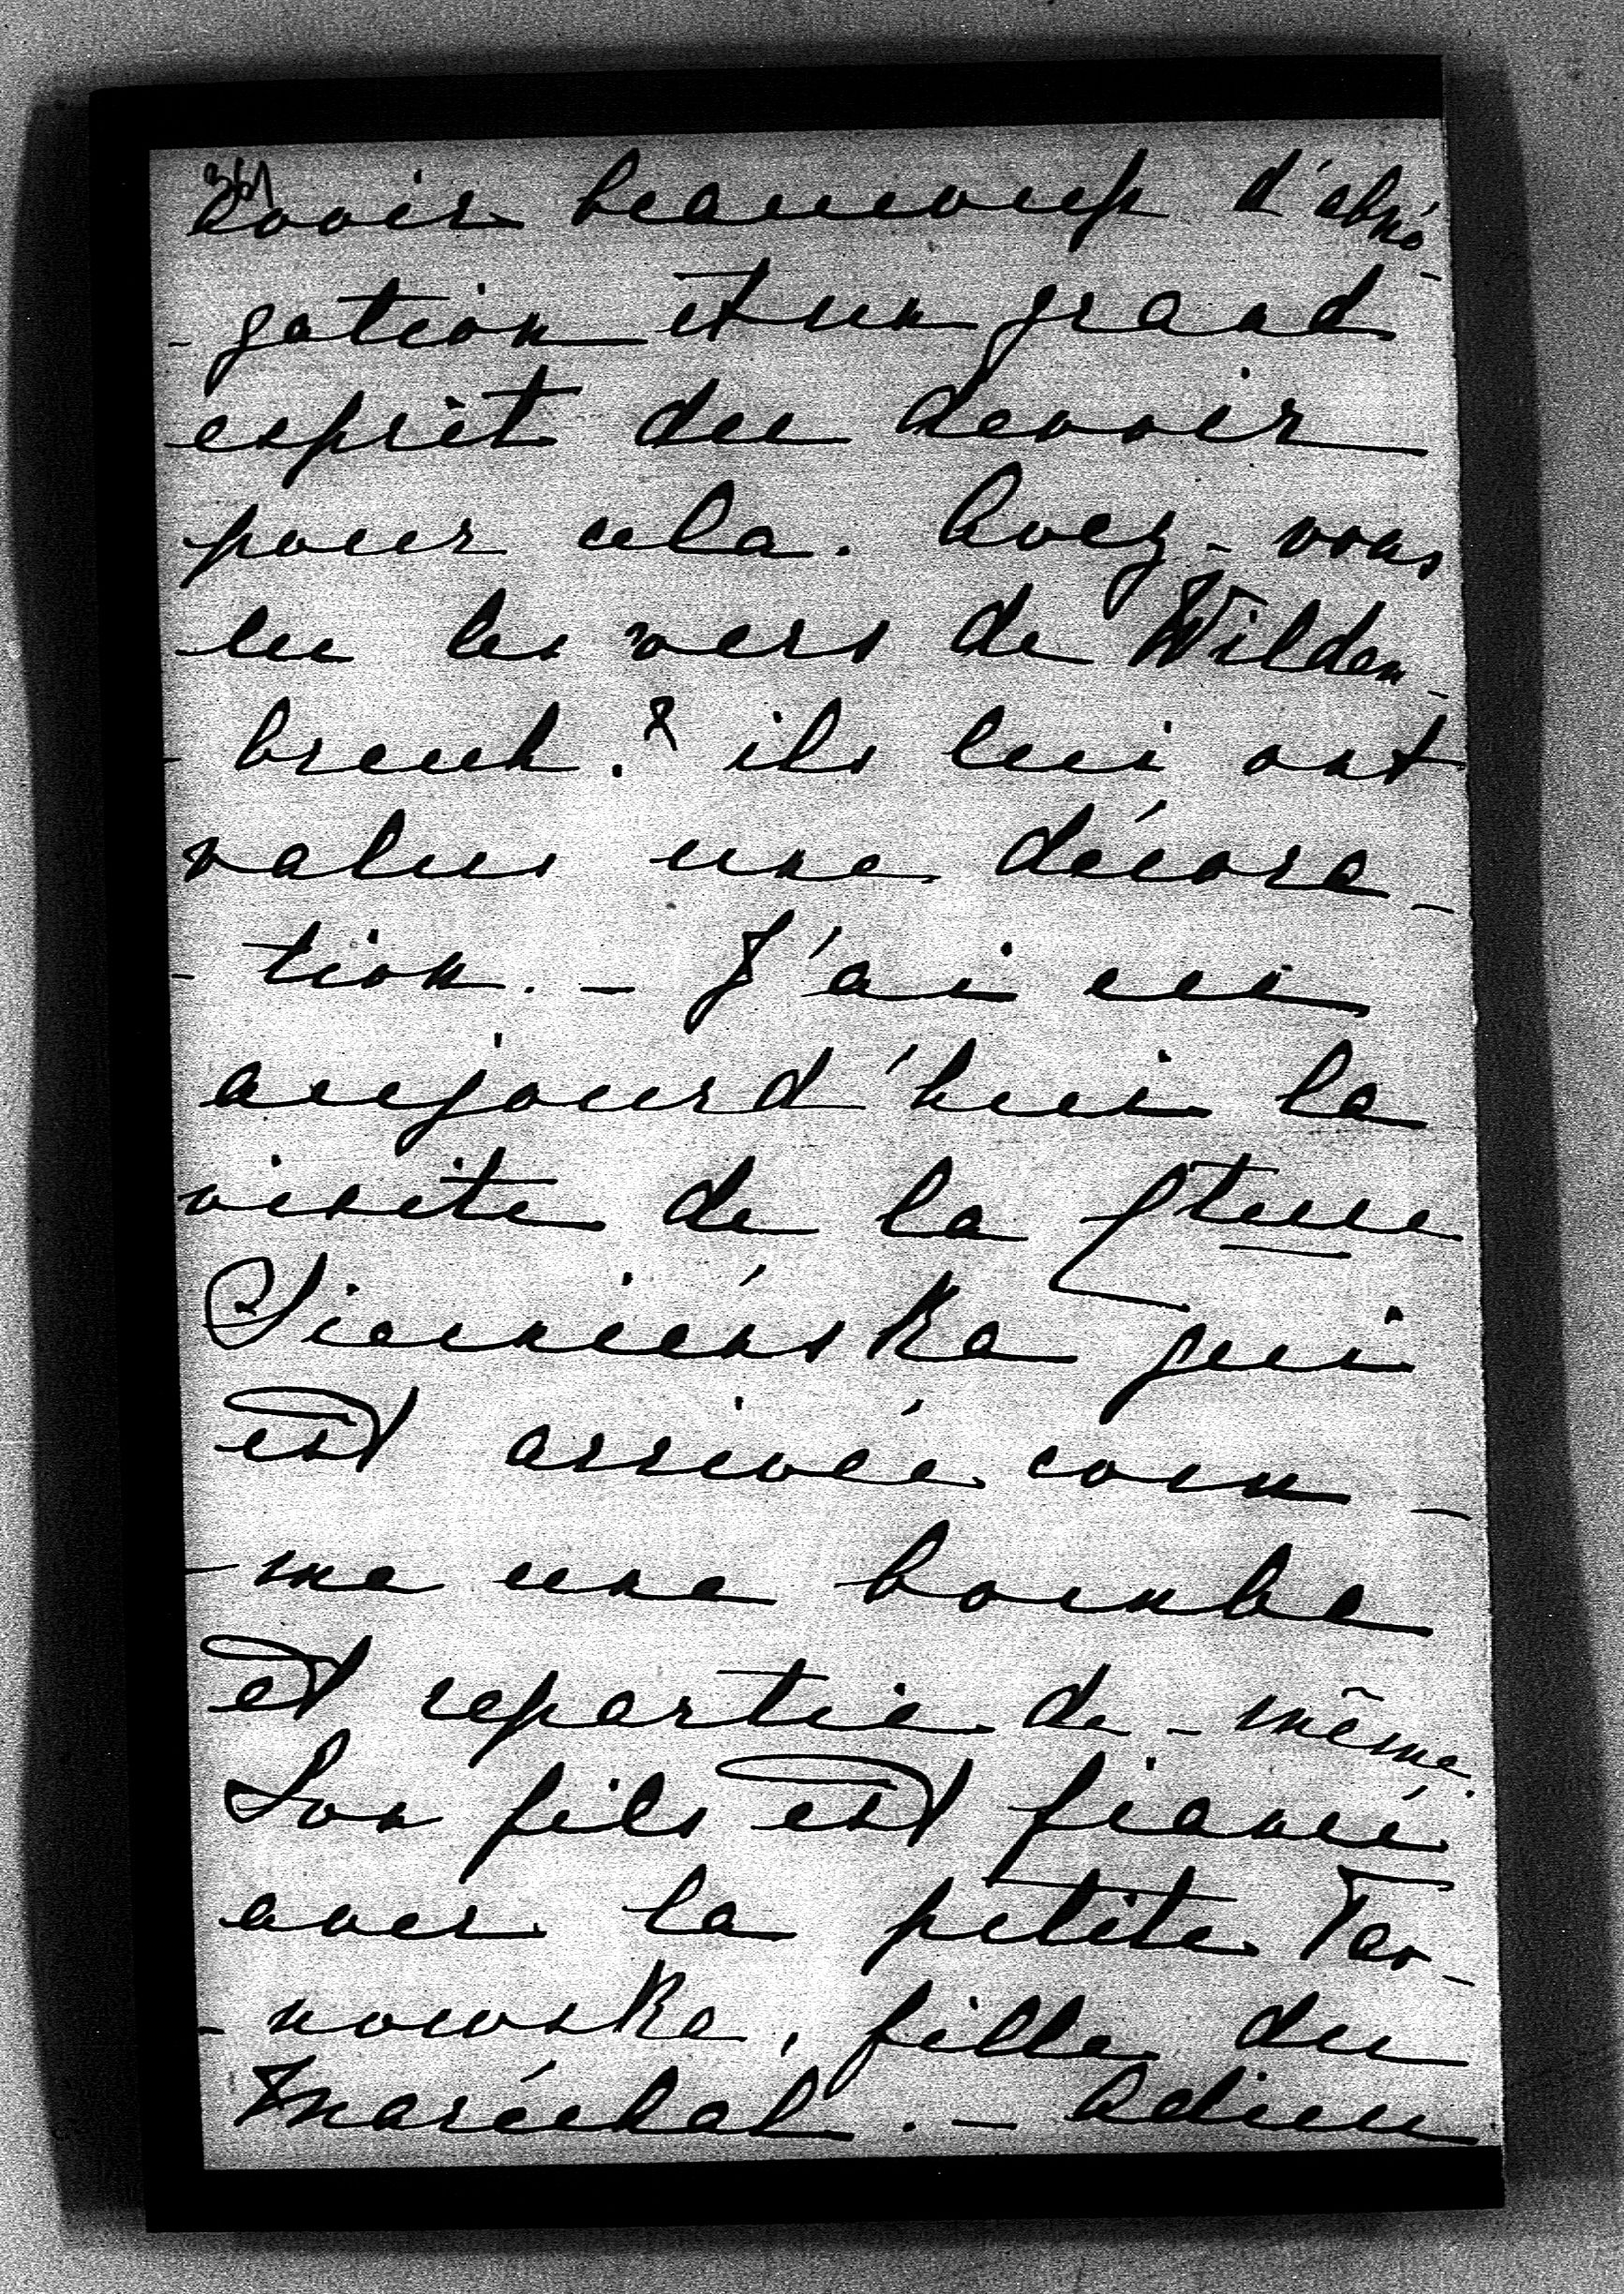 361
avoir beaucoup d'abné-
-gation et un grand
esprit du devoir
pour cela. Avez-vous
lu les vers de Wilden-
-bruch.? ils lui ont
valus une décora-
-tion. - J'ai eu
aujourd'hui la
visite de la Ctesse
Siemieńska qui
est arrivée com-
-me une bombe
et repartie de-même.
Son fils est fiancé
avec la petite Tar-
-nowska, fille du
Maréchal. - Adieu